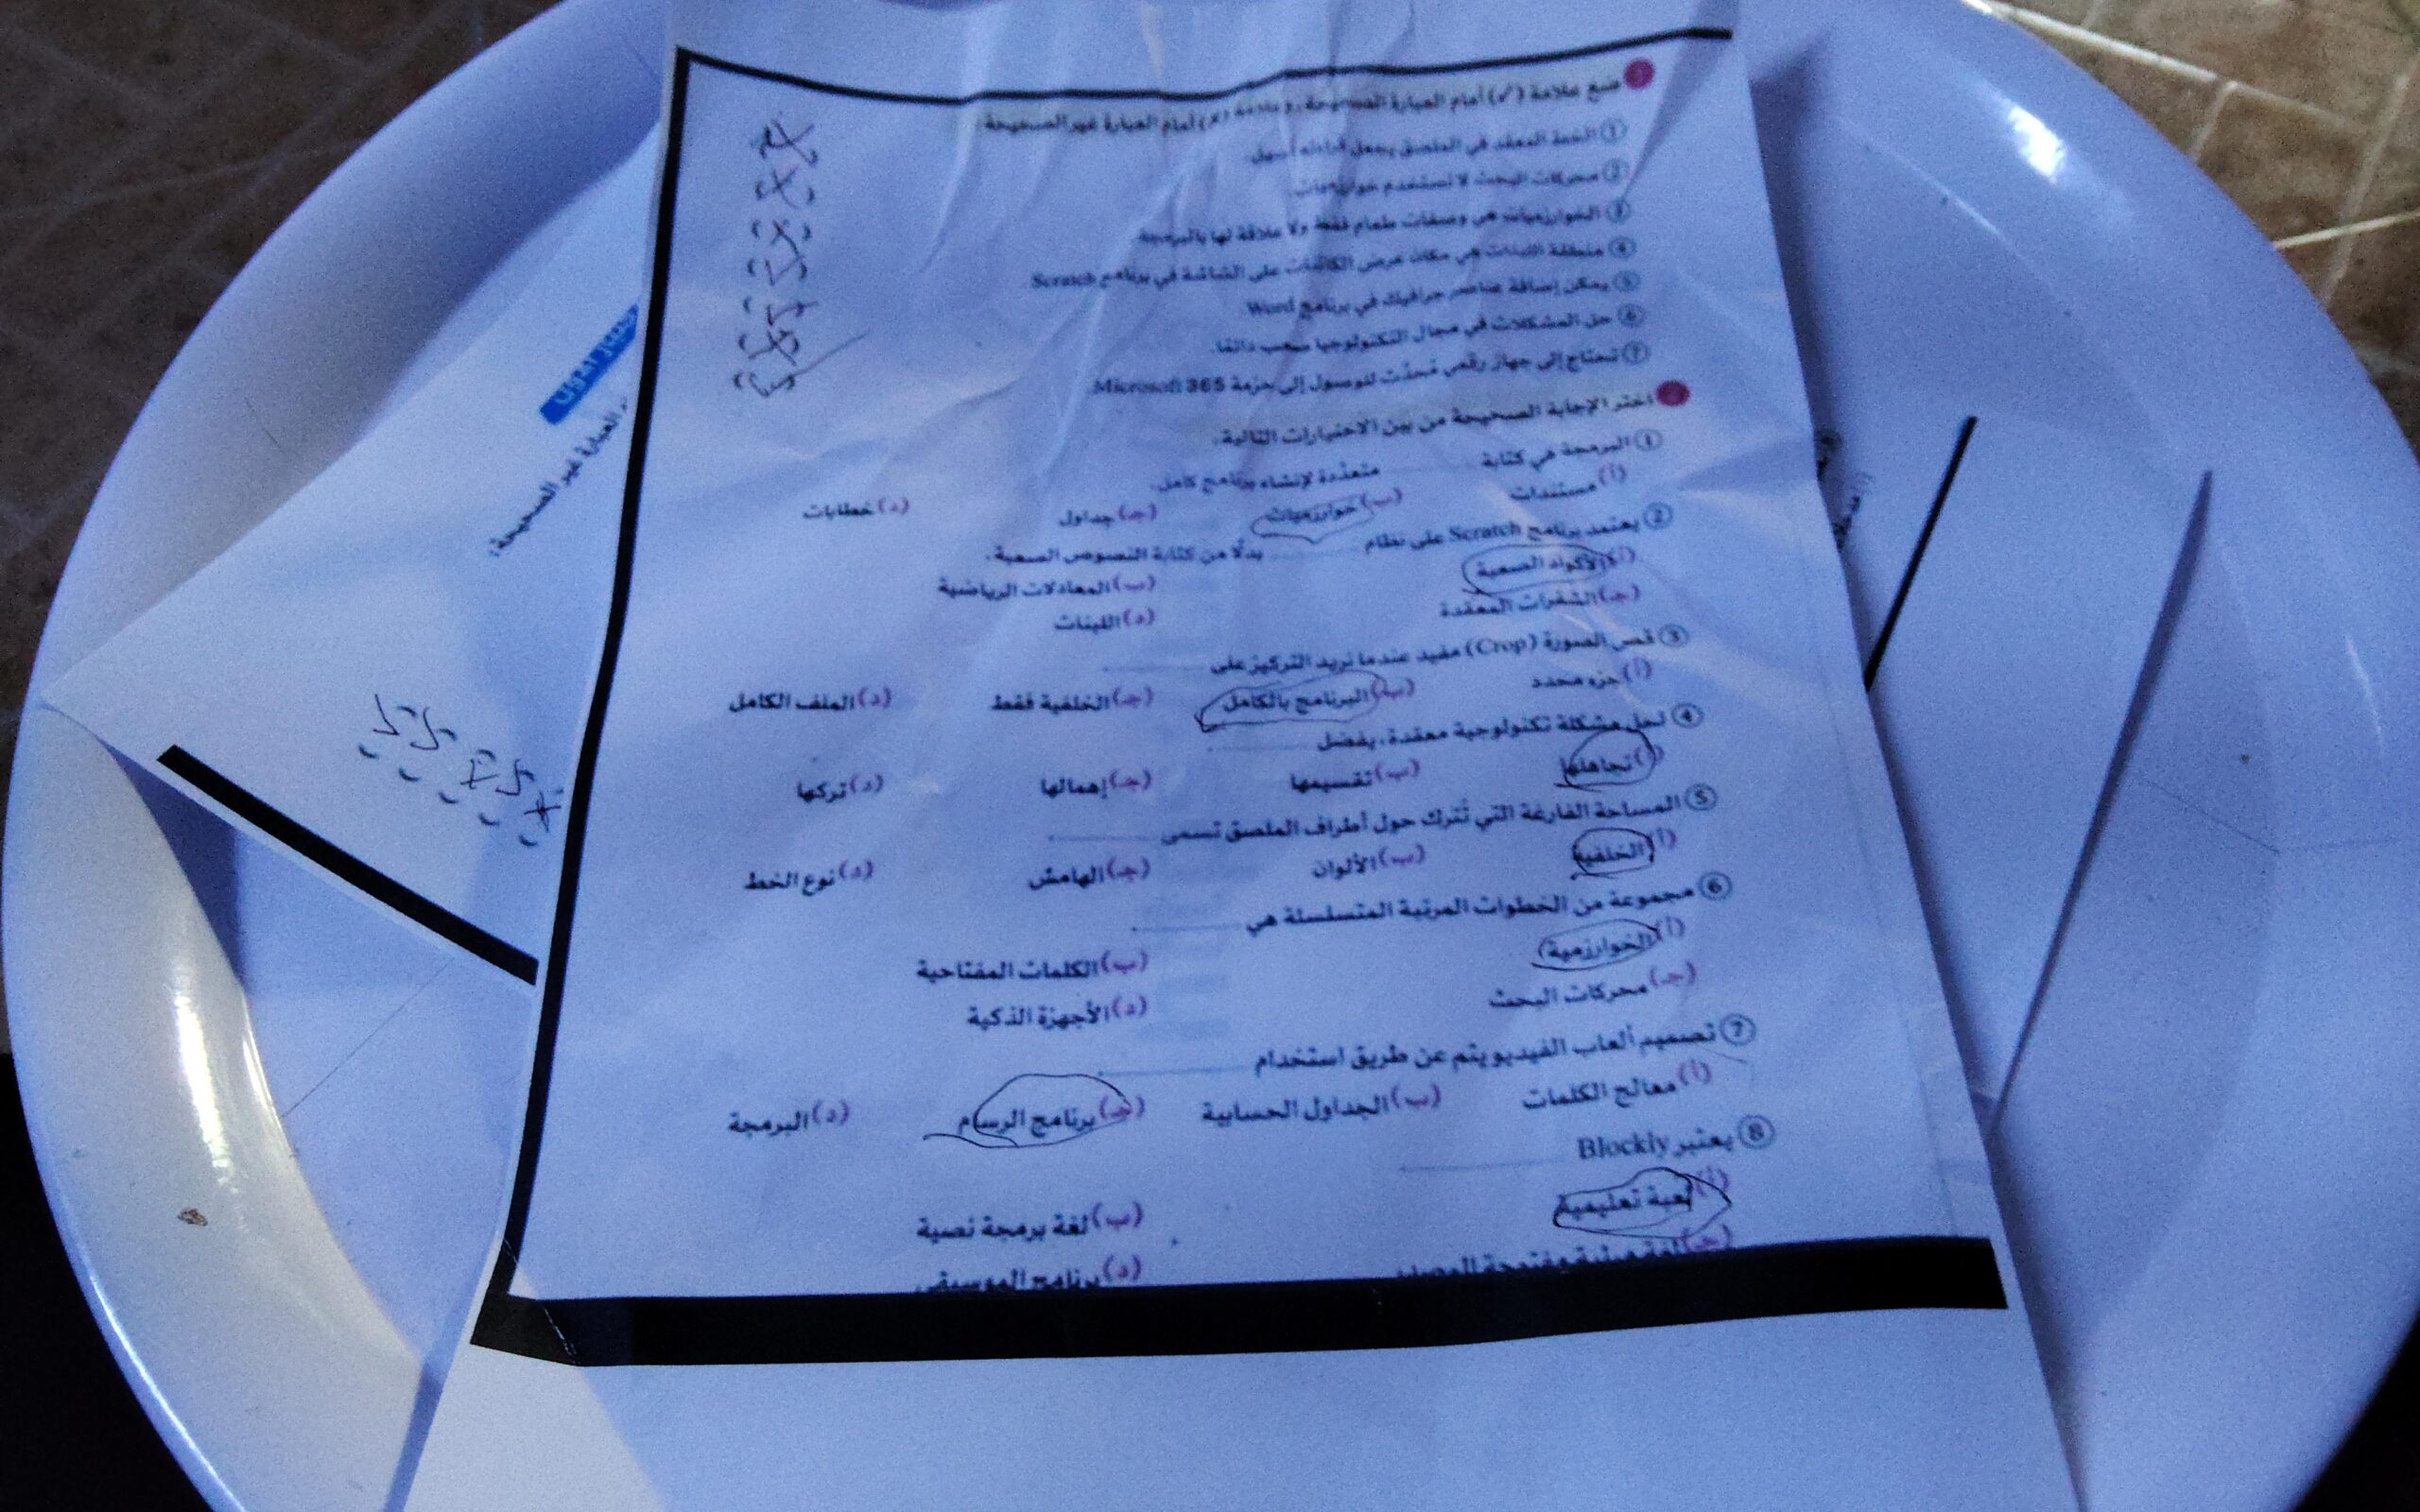 ضع علامة (✓) أمام العبارة الصحيحة، وعلامة (✗) أمام العبارة غير الصحيحة:
① الخط المعقد في الملصق يجعل قراءته أسهل.
② محركات البحث لا تستخدم خوارزميات.
③ الخوارزميات هي وصفات طعام فقط ولا علاقة لها بالبرمجة.
④ منطقة اللبنات هي مكان عرض الكائنات على الشاشة في برنامج Scratch
⑤ يمكن إضافة عناصر جرافيك في برنامج Word.
⑥ حل المشكلات في مجال التكنولوجيا صعب دائمًا.
⑦ تحتاج إلى جهاز رقمي مُحدَّث للوصول إلى حزمة Microsoft 365.
اختر الإجابة الصحيحة من بين الاختيارات التالية:
① البرمجة هي كتابة متعددة لإنشاء برنامج كامل.
(أ) مستندات (ب) خوارزميات (جـ) جداول (د) خطابات
② يعتمد برنامج Scratch على نظام بدلًا من كتابة النصوص الصعبة.
(أ) الأكواد الصعبة (ب) المعادلات الرياضية
(جـ) الشفرات المعقدة (د) اللبنات
③ قص الصورة (Crop) مفيد عندما نريد التركيز على
(أ) جزء محدد (ب) البرنامج بالكامل (جـ) الخلفية فقط (د) الملف الكامل
④ لحل مشكلة تكنولوجية معقدة، يفضل
(أ) تجاهلها (ب) تقسيمها (جـ) إهمالها (د) تركها
⑤ المساحة الفارغة التي تُترك حول أطراف الملصق تسمى
(أ) الخلفية (ب) الألوان (جـ) الهامش (د) نوع الخط
⑥ مجموعة من الخطوات المرتبة المتسلسلة هي
(أ) الخوارزمية (ب) الكلمات المفتاحية
(جـ) محركات البحث (د) الأجهزة الذكية
⑦ تصميم ألعاب الفيديو يتم عن طريق استخدام
(أ) معالج الكلمات (ب) الجداول الحسابية (جـ) برنامج الرسام (د) البرمجة
⑧ يعتبر Blockly
(أ) لعبة تعليمية (ب) لغة برمجة نصية
(جـ) لغة مرئية مفتوحة المصدر (د) برنامج الموسيقى
العبارة غير الصحيحة: